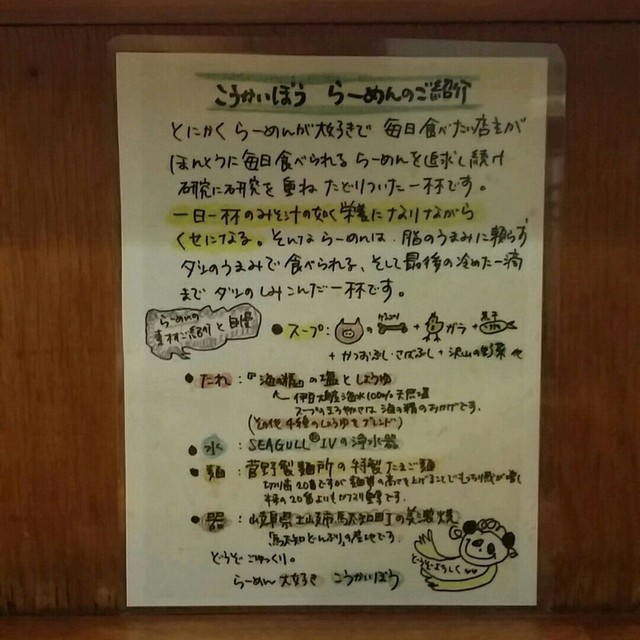 こうかいぼう らーめんのご紹介
とにかく らーめんが大好きで 毎日食べたい店主が
ほんとうに毎日食べられる らーめんを追求し続け
研究に研究を重ね たどりついた一杯です。
一日一杯のみそ汁の如く栄養になりながら
くせになる。そんならーめんは、脂のうまみに頼らず
ダシのうまみで食べられる、そして最後の冷めた一滴
まで ダシのしみこんだ一杯です。
らーめんの
素材ご紹介と自慢
●スープ: の + ガラ + 煮干
+ かつおぶし・さばぶし + 沢山の野菜
●たれ:「海の精」の塩としょうゆ
伊豆大島海水100%天然塩
スープのまろやかさは海の精のおかげです。
(その他4種のしょうゆをブレンド)
●水:SEAGULL Ⅳの浄水器
●麺:菅野製麺所の特製たまご麺
切り歯20番ですが麺質の高さを上げることでもっちり感が増し
本来の20番よりも
●器:岐阜県土岐市駄知町の美濃焼
「駄知どんぶり」の産地です。
どうぞごゆっくり。
らーめん大好き こうかいぼう
どうぞよろしく